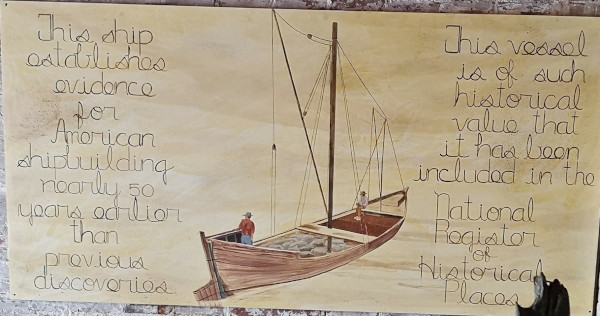 This ship
establishes
evidence
for
American
shipbuilding
nearly 50
years earlier
than
previous
discoveries
This vessel
is of such
historical
value that
it has been
included in the
National
Register
of
Historical
Places